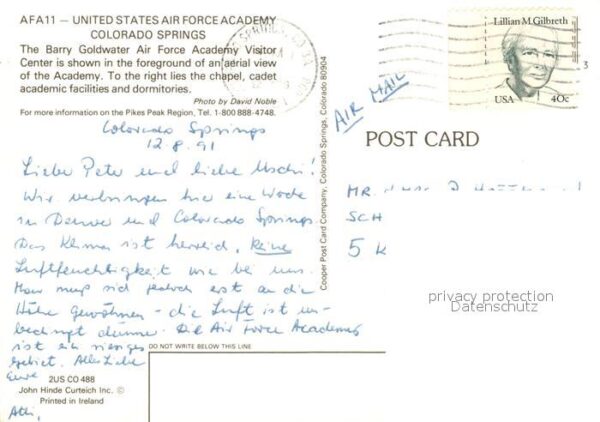 AFA11 – UNITED STATES AIR FORCE ACADEMY
COLORADO SPRINGS
The Barry Goldwater Air Force Academy Visitor
Center is shown in the foreground of an aerial view
of the Academy. To the right lies the chapel, cadet
academic facilities and dormitories.
Photo by David Noble
For more information on the Pikes Peak Region, Tel. 1-800 888-4748.
Colorado Springs
12.8.91
Lieber Peter und liebe Uschi!
Wir verbringen hier eine Woche
in Denver und Colorado Springs.
Das Klima ist herrlich, keine
Luftfeuchtigkeit wie bei uns.
Man muß sich jedoch erst an die
Höhe gewöhnen - die Luft ist un-
bedingt dünner. Die Air Force Academy
ist ein riesiges
Gebiet. Alles Liebe
Eure
2US CO 488
John Hinde Curteich Inc. ©
Printed in Ireland
DO NOT WRITE BELOW THIS LINE
Cooper Post Card Company, Colorado Springs, Colorado 80904
Lillian M. Gilbreth
USA 40c
3
AIR MAIL
POST CARD
MR.
SCH
5 K
privacy protection
Datenschutz